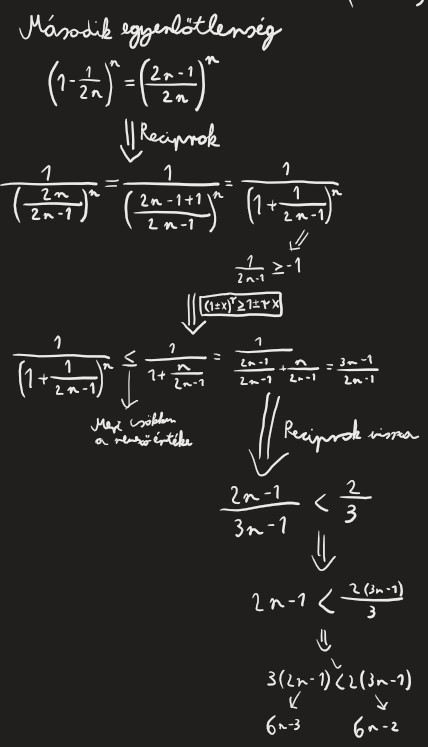 Második egyenlőtlenség
(1-1/2n)^n = (2n-1/2n)^n
⇓ Reciprok
1/(2n/2n-1)^n = 1/(2n-1+1/2n-1)^n = 1/(1+1/2n-1)^n
1/2n-1 ≥ -1
⇓ (1±x)^r ≥ 1±r·x
1/(1+1/2n-1)^n ≤ 1/1+n/2n-1 = 1/2n-1/2n-1+n/2n-1 = 3n-1/2n-1
Mert csökken
a nevező értéke
⇓ Reciprok vissza
2n-1/3n-1 < 2/3
⇓
2n-1 < 2(3n-1)/3
⇓
3(2n-1) < 2(3n-1)
6n-3 6n-2